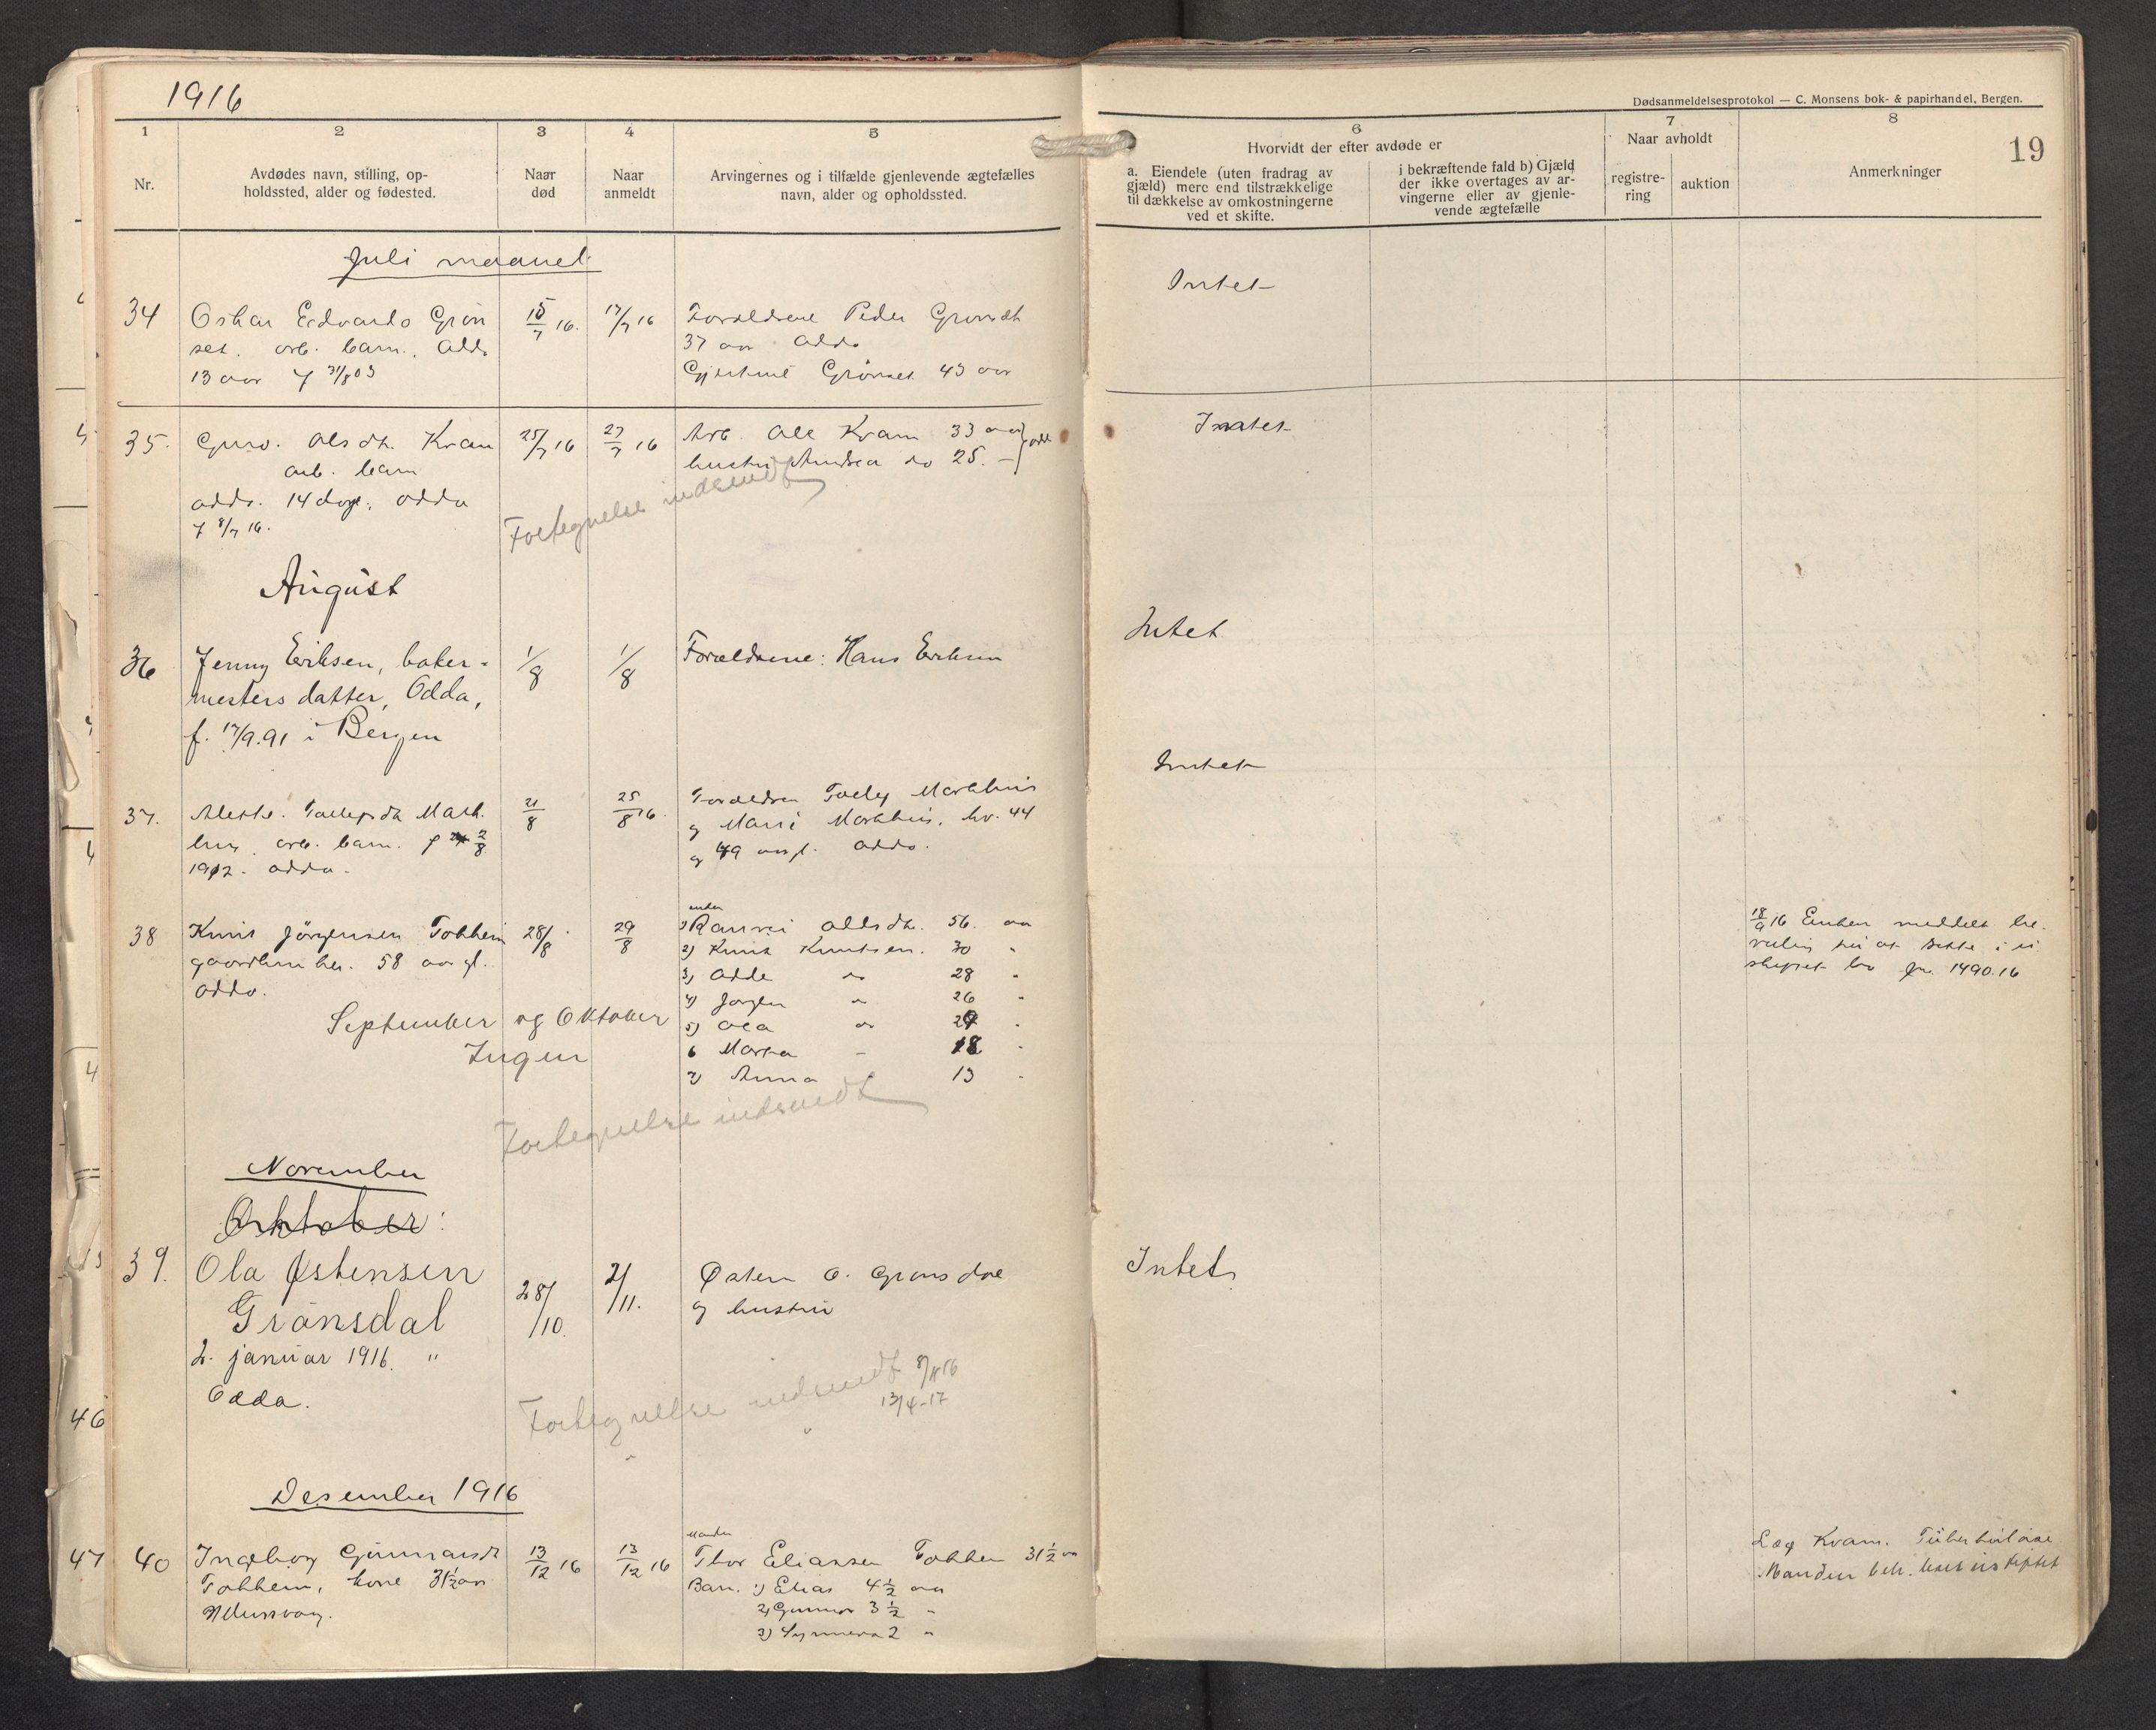 1916
Dødsanmeldelsesprotokol — C. Monsens bok- & papirhandel, Bergen.
19
1
2
3
4
5
6
7
8
Nr.
Avdødes navn, stilling, op-
holdssted, alder og fødested.
Naar
død
Naar
anmeldt
Arvingernes og i tilfælde gjenlevende ægtefælles
navn, alder og opholdssted.
Hvorvidt der efter avdøde er
a. Eiendele (uten fradrag av
gjæld) mere end tilstrækkelige
til dækkelse av omkostningerne
ved et skifte.
i bekræftende fald b) Gjæld
der ikke overtages av ar-
vingerne eller av gjenle-
vende ægtefælle
Naar avholdt
registre-
ring
auktion
Anmerkninger
Juli maaned
34
Oskar Edvards Grön
set. arb. barn. Odda
13 aar f 31/8 03
15/7 16.
17/7 16
Forældrene Peder Grönset
37 aar Odda
Gjertine Grönset 43 aar
Intet
35.
Guro. Olsdt. Kvam
arb. barn
Odda. 14 dage. Odda
f 8/7 16.
25/7 16
27/7 16
Arb. Ole Kvam 33 aar
hustru Andrea do 25. — Odda
Intet
Fortegnelse indsendt
August
36
Jenny Eriksen, baker-
mesters datter, Odda,
f. 17/9.91 i Bergen
1/8
1/8
Forældrene: Hans Eriksen
Intet
37.
Tollefsdt Mark
hus. arb. barn. f 2/8
1912. Odda.
21/8
25/8 16.
Forældre Markhus
og Marri Markhus, hv. 44
og 49 aar gl. Odda.
Intet
38
Knut Jörgensen Tokheim
gaardbruker. 58 aar gl.
Odda.
28/8
29/8
enken
1) Ranvei Olsdt. 56. aar
2) Knut Knutsen. 30 "
3) Odde do 28 "
4) Jörgen " 26 "
5) Ola do 24 "
6 Marta – 18 "
7) Anna 13 "
18/9 16 Enken meddelt be-
villing til at sitte i u
skiftet bo jr. 1490.16
September og Oktober
Ingen
Fortegnelse indsendt
November
Oktober:
39.
Ola Østensen
Grönsdal
2. januar 1916. "
Odda.
28/10.
2/11.
Østen O. Grönsdal
og hustru
Intet
Fortegnelse indsendt 8/11 16
" " 13/4-17
Desember 1916
46
47
40
Ingeborg Gunnarsdt
Tokheim, kone 31½ aar
13/12 16
13/12 16
Manden
Thor Eliassen Tokheim 31½ aar
Barn. 1) Elias 4½ aar
2) Gunnar 3½ "
3) Synneva 2 "
Læg Kvam. Tüberkulose
Manden beh. boet uskiftet